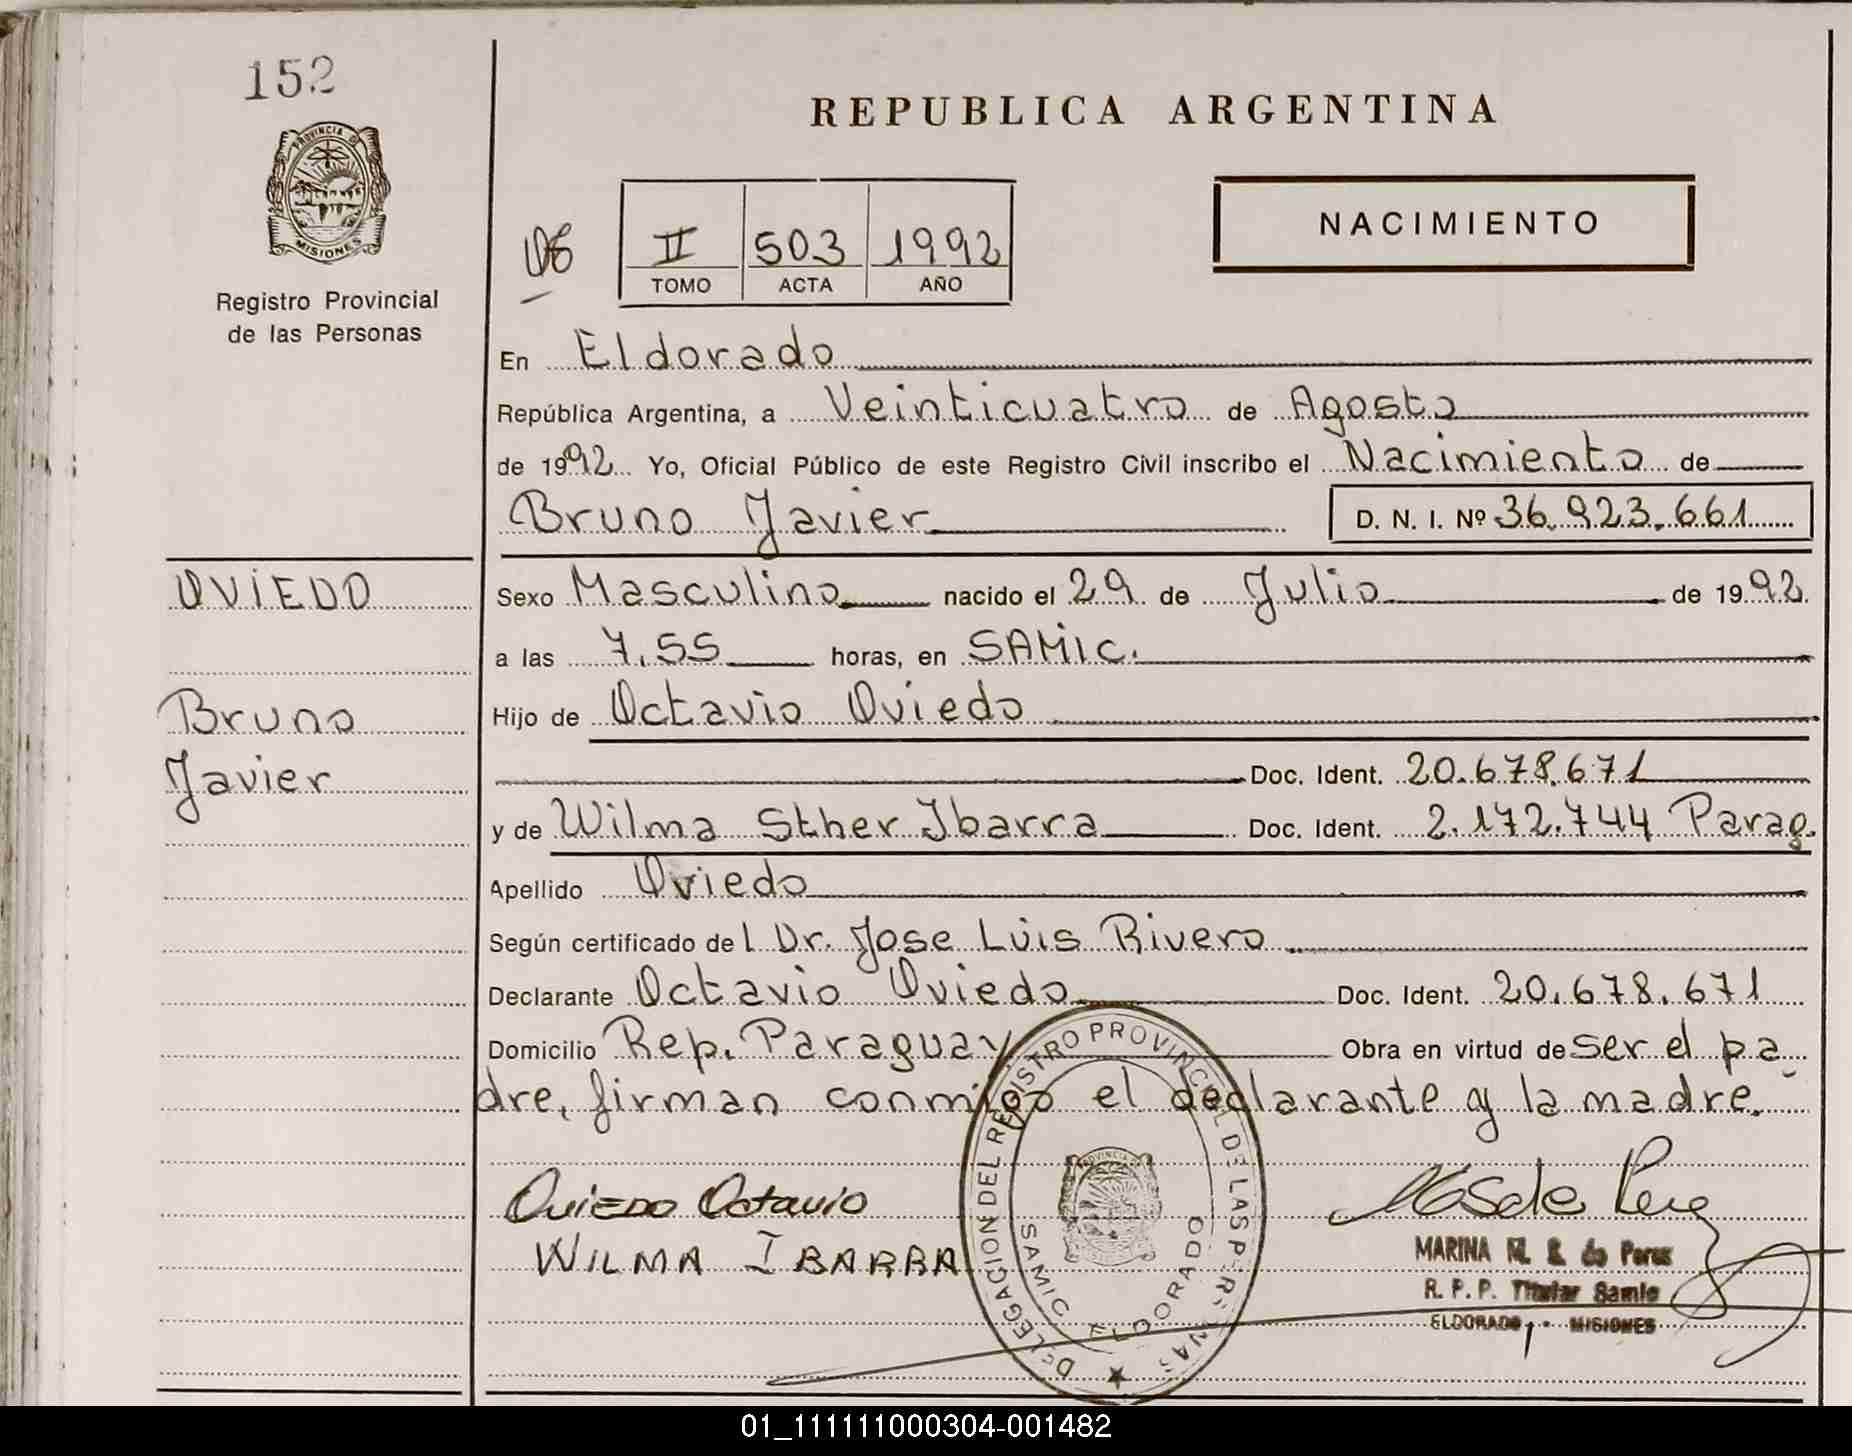 152
PROVINCIA DE
MISIONES
Registro Provincial
de las Personas
REPUBLICA ARGENTINA
NACIMIENTO
II 503 1992
TOMO ACTA AÑO
En Eldorado
República Argentina, a Veinticuatro de Agosto
de 1992 Yo, Oficial Público de este Registro Civil inscribo el Nacimiento de
Bruno Javier D. N. I. Nº 36.923.661
OVIEDO
Bruno
Javier
Sexo Masculino nacido el 29 de Julio de 1992
a las 7,55 horas, en SAMIC.
Hijo de Octavio Oviedo
Doc. Ident. 20.678.671
y de Wilma Sther Ibarra Doc. Ident. 2.172.744 Parag.
Apellido Oviedo
Según certificado del Dr. Jose Luis Rivero
Declarante Octavio Oviedo Doc. Ident. 20.678.671
Domicilio Rep. Paraguay Obra en virtud de ser el pa
dre, firman conmigo el declarante y la madre.
OVIEDO Octavio
WILMA IBARRA
DELEGACION DEL REGISTRO PROVINCIAL DE LAS PERSONAS
SAMIC ELDORADO
MARINA M. S. de Perez
R. P. P. Titular Samic
ELDORADO - MISIONES
01_111111000304-001482